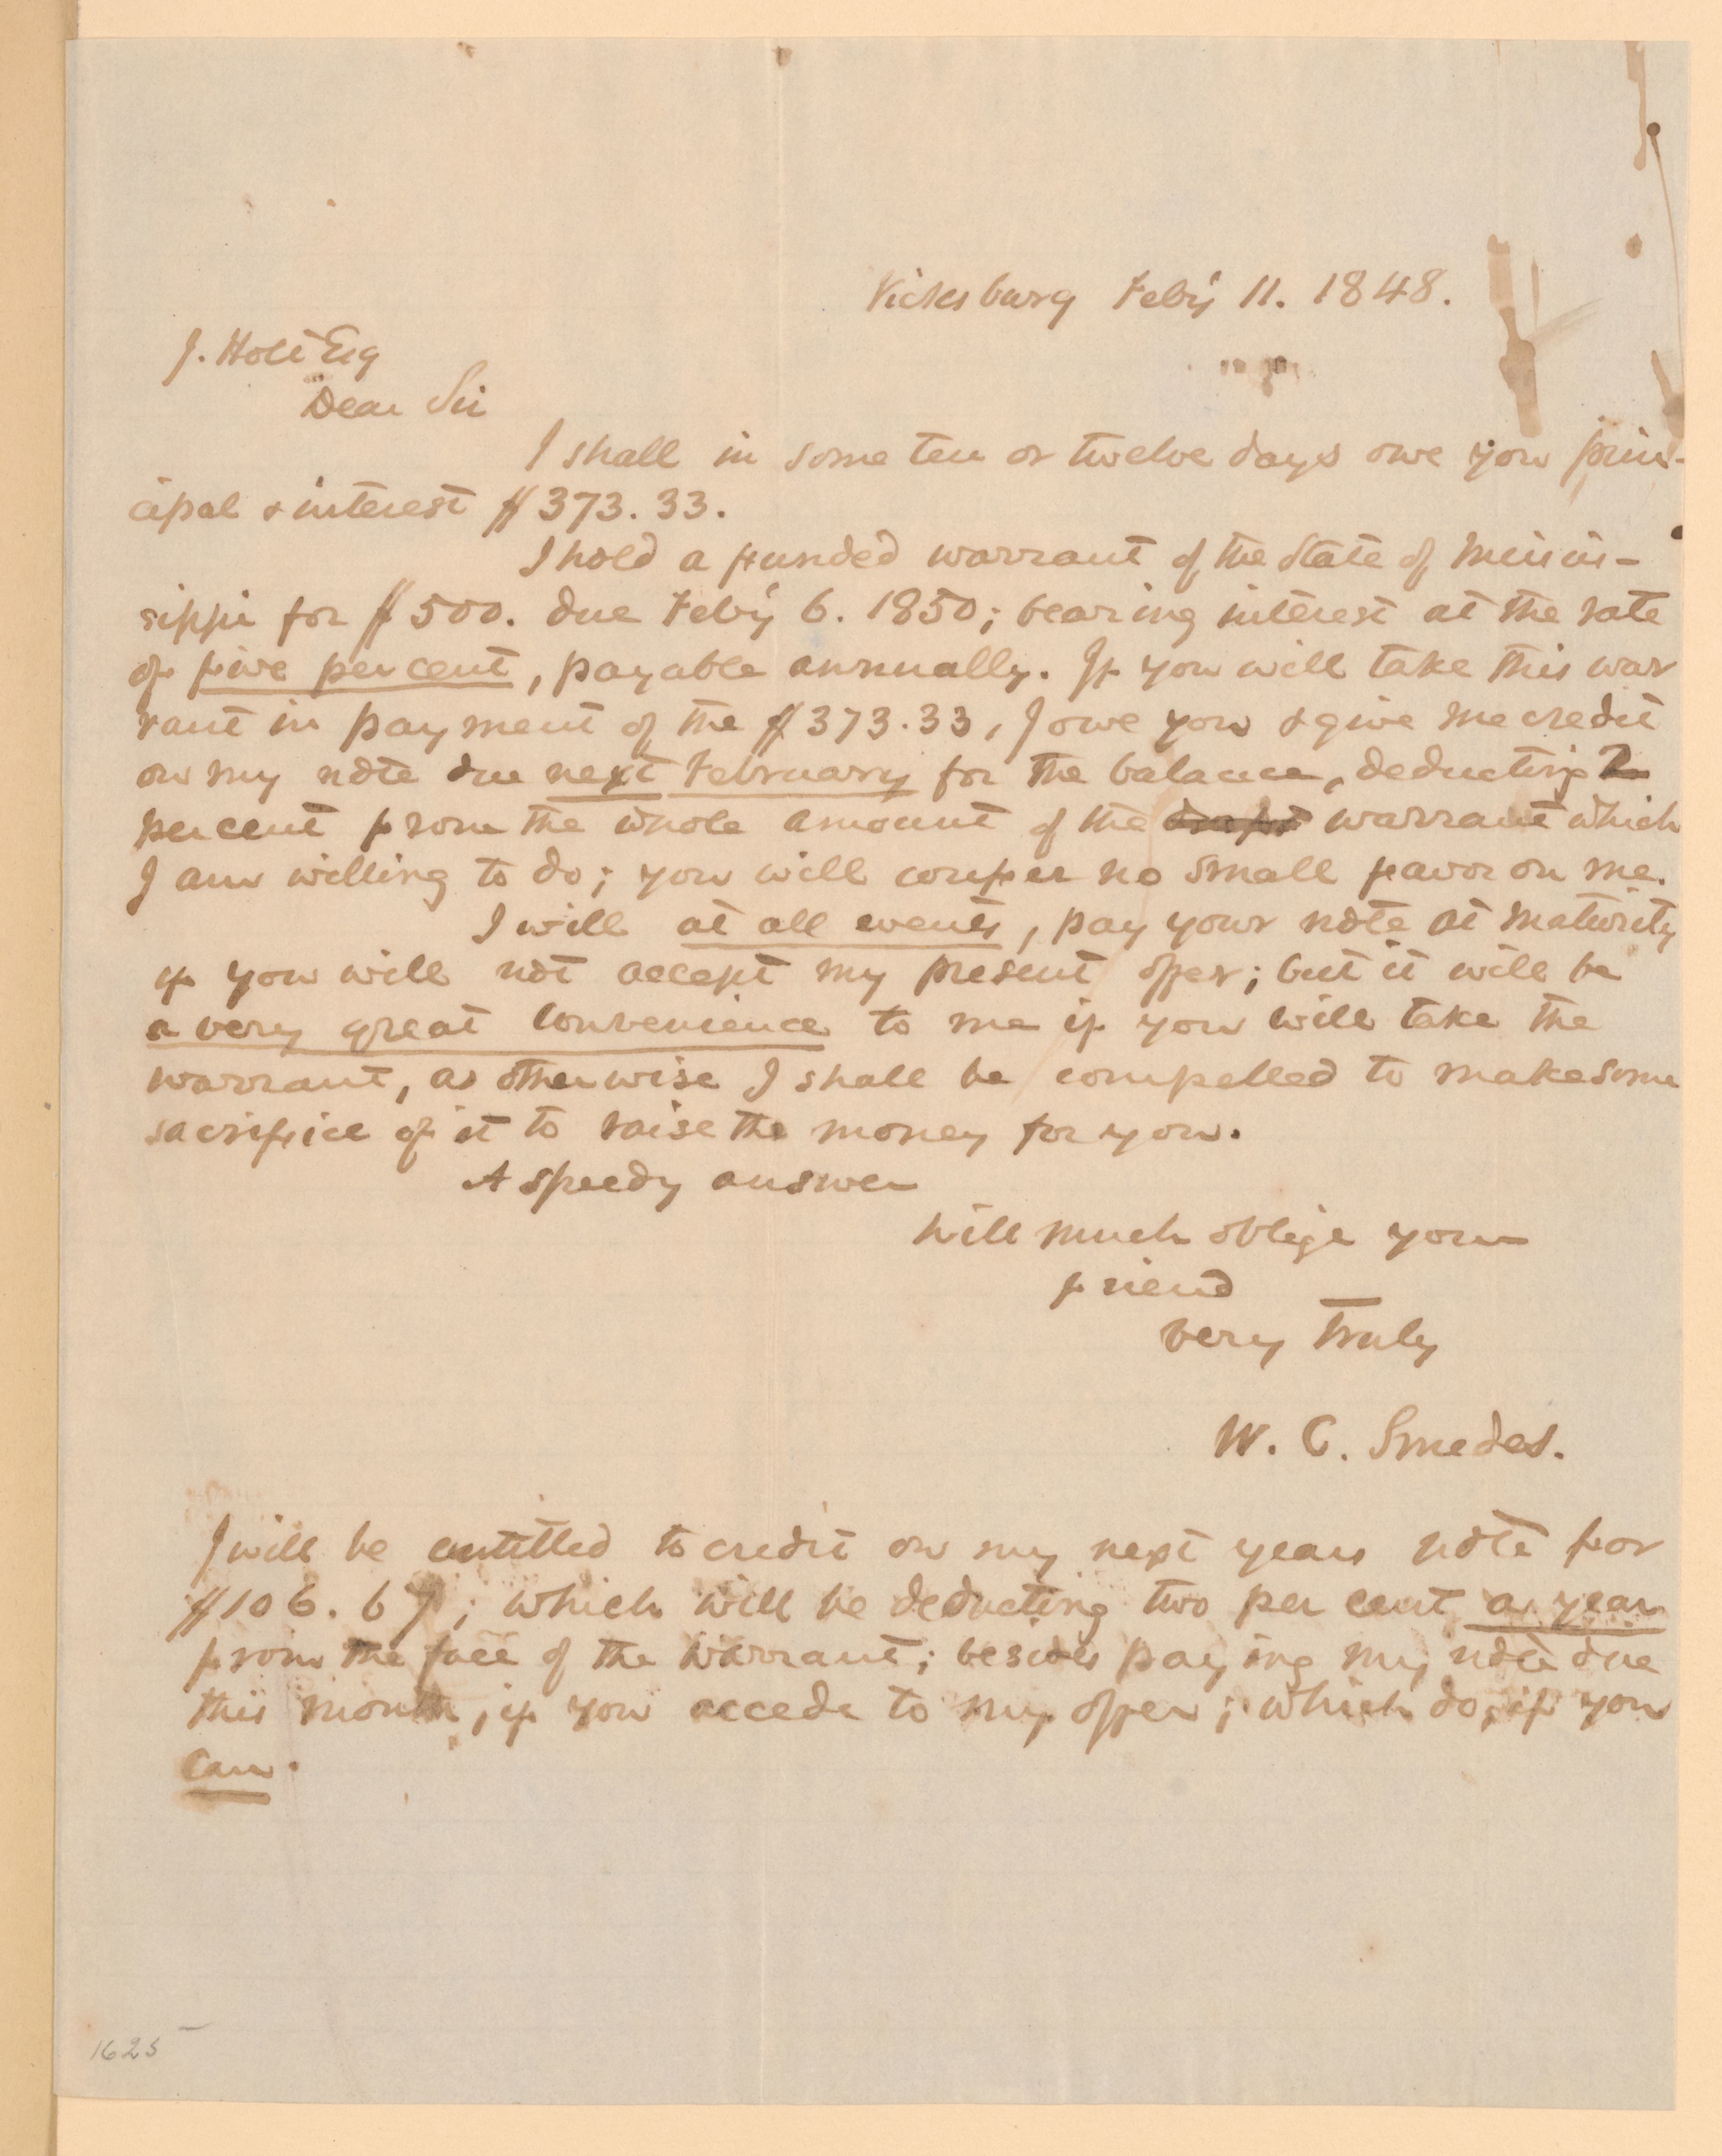 Vicksburg Feby 11. 1848.
J. Holt Esq
Dear Sir
I shall in some ten or twelve days owe you prin-
cipal & interest $373.33.
I hold a funded warrant of the State of Missis-
sippi for $500. due Feby 6. 1850; bearing interest at the rate
of five per cent, payable annually. If you will take this war
rant in payment of the $373.33, I owe you & give me credit
on my note due next February for the balance, deducting 2
per cent from the whole amount of the draft warrant which
I am willing to do; you will confer no small favor on me.
I will at all events, pay your note at maturity
if you will not accept my present offer; but it will be
a very great convenience to me if you will take the
warrant, as otherwise I shall be compelled to make some
sacrifice of it to raise the money for you.
A speedy answer
will much oblige your
friend
very truly
W. C. Smedes.
I will be entitled to credit on my next years note for
$106.67; which will be deducting two per cent a year
from the face of the warrant; besides paying my note due
this month, if you accede to my offer; which do, if you
can.
1625